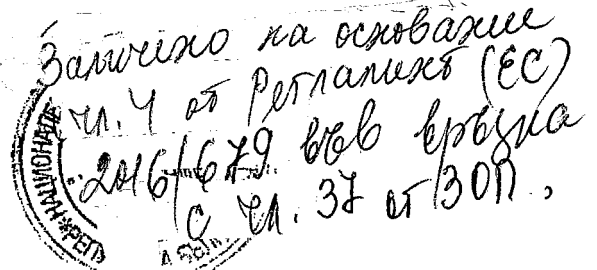 Заличено на основание
чл. 4 от Регламент (ЕС)
2016/679 във връзка
с чл. 37 от ЗОП,
НАЦИОНАЛ